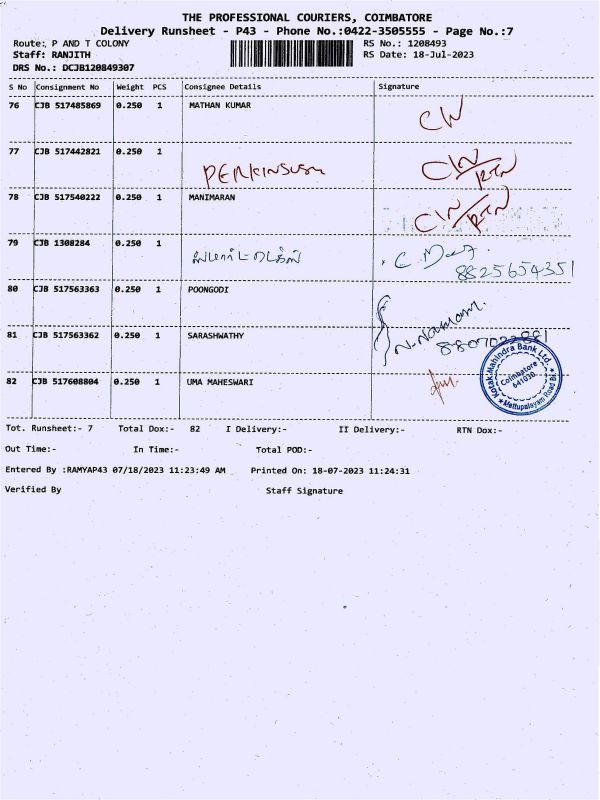 THE PROFESSIONAL COURIERS, COIMBATORE
Delivery Runsheet - P43 - Phone No.:0422-3505555 - Page No.:7
Route: P AND T COLONY RS No.: 1208493
Staff: RANJITH RS Date: 18-Jul-2023
DRS No.: DCJB120849307
S No Consignment No Weight PCS Consignee Details Signature
76 CJB 517485869 0.250 1 MATHAN KUMAR CW
77 CJB 517442821 0.250 1 CW/RTN
78 CJB 517540222 0.250 1 MANIMARAN CW/RTN
79 CJB 1308284 0.250 1
8825654351
80 CJB 517563363 0.250 1 POONGODI
81 CJB 517563362 0.250 1 SARASHWATHY
82 CJB 517608804 0.250 1 UMA MAHESWARI
Kotak Mahindra Bank Ltd.
Coimbatore
641030.
Mettupalayam Road Br.
Tot. Runsheet:- 7 Total Dox:- 82 I Delivery:- II Delivery:- RTN Dox:-
Out Time:- In Time:- Total POD:-
Entered By :RAMYAP43 07/18/2023 11:23:49 AM Printed On: 18-07-2023 11:24:31
Verified By Staff Signature